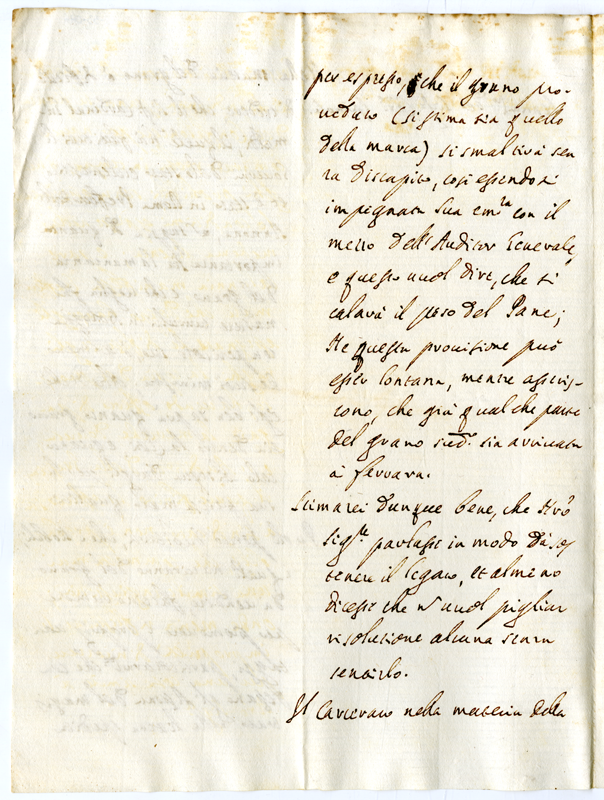 per espresso, che il grano pro-
ueduto (si stima sia quello
della marca) si smaltirà sen
za discapito, così essendosi
impegnata Sua em.za con il
mezzo dell' Auditor Generale,
e questo uuol dire, che si
calarà il peso del Pane;
Ne questa prouisione può
esser lontana, mentre asseris-
cono, che già qualche parte
del grano sud.o sia arriuata
à ferrara.
Stimarei dunque bene, che
sig.re parlasse in modo da sos
tenere il legato, et almeno
dicesse che uuol pigliar
risolutione alcuna senza
sentirlo.
Il nella materia della